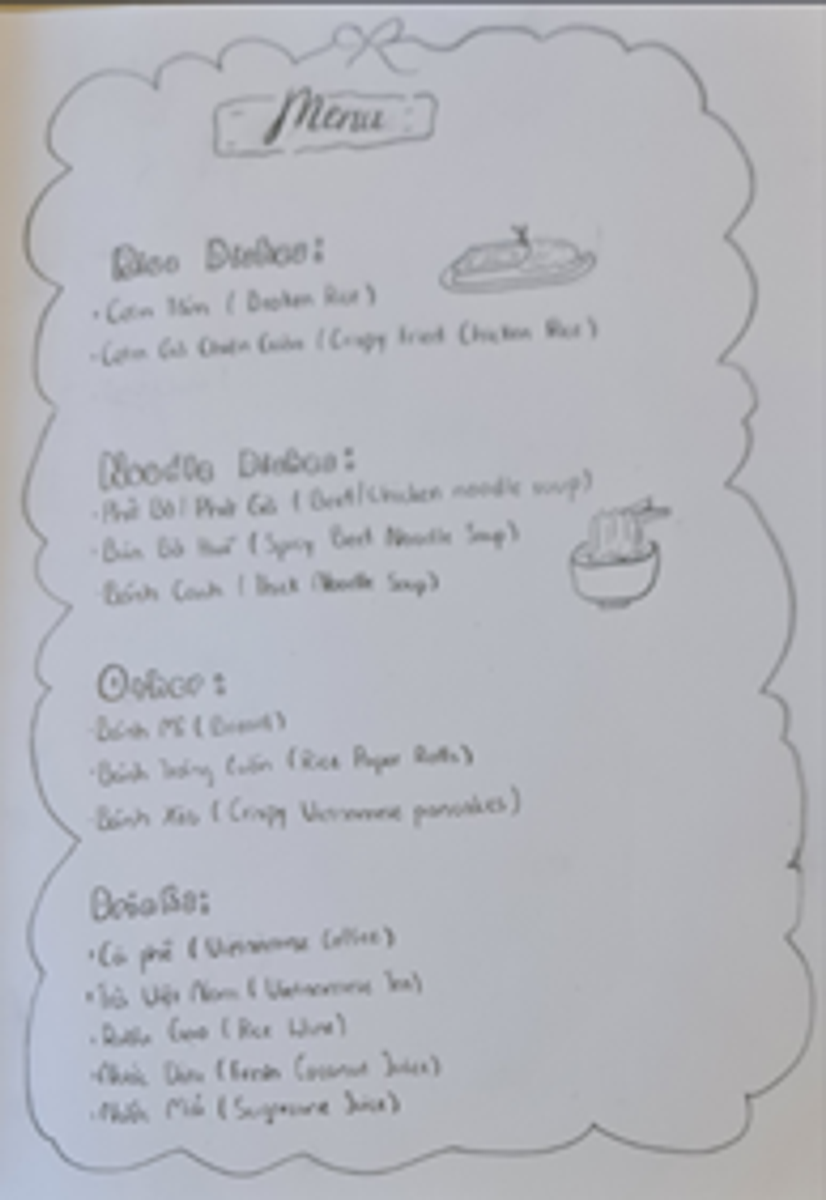 Menu
Rice Dishes:
• Cơm Tấm ( Broken Rice )
- Cơm Gà Chiên Giòn ( Crispy Fried Chicken Rice )
Noodle Dishes:
- Phở Bò / Phở Gà ( Beef/Chicken noodle soup )
- Bún Bò Huế ( Spicy Beef Noodle Soup )
- Bánh Canh ( Thick Noodle Soup )
Others:
- Bánh Mì ( Bread )
- Bánh Tráng Cuốn ( Rice Paper Rolls )
- Bánh Xèo ( Crispy Vietnamese pancakes )
Drinks:
• Cà phê ( Vietnamese Coffee )
• Trà Việt Nam ( Vietnamese Tea )
- Rượu Gạo ( Rice Wine )
- Nước Dừa ( Fresh Coconut Juice )
- Nước Mía ( Sugarcane Juice )